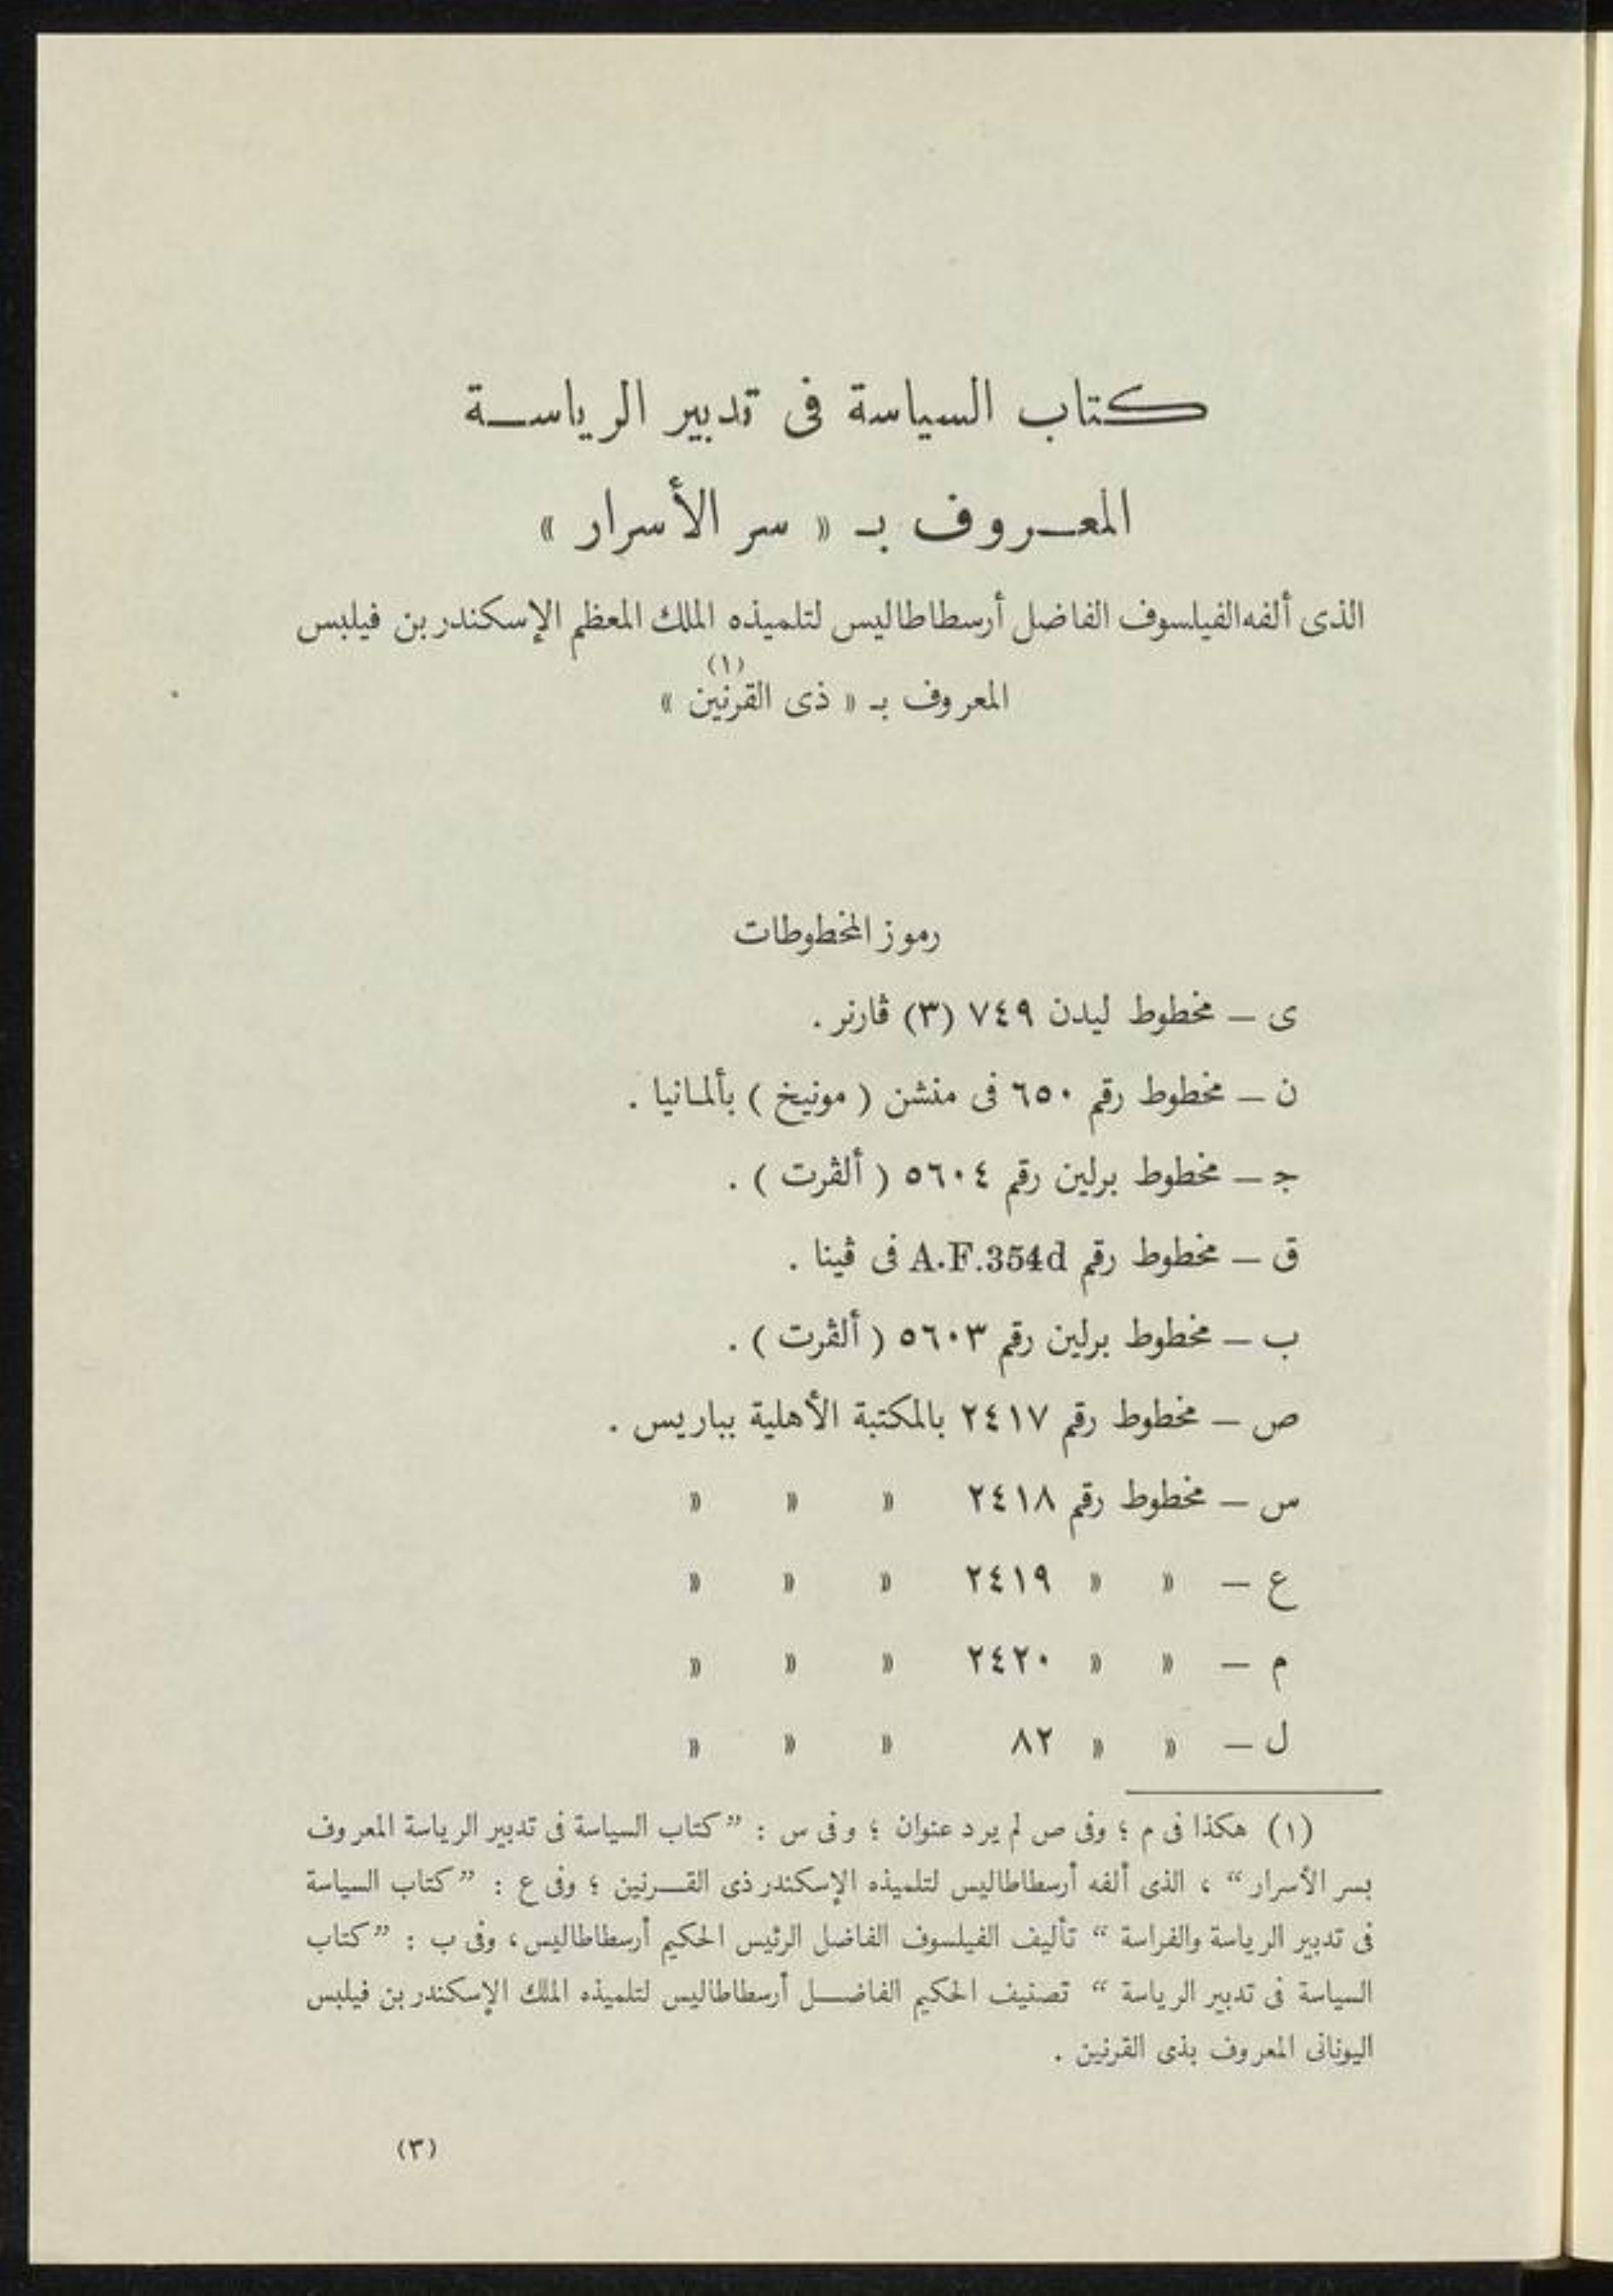 كتاب السياسة فى تدبير الرياسة
المعروف بـ « سر الأسرار »
الذى ألفه الفيلسوف الفاضل أرسطاطاليس لتلميذه الملك المعظم الإسكندر بن فيلبس
المعروف بـ « ذى القرنين » (١)
رموز المخطوطات
ى – مخطوط ليدن ٧٤٩ (٣) ڤارنر .
ن – مخطوط رقم ٦٥٠ فى منشن ( مونيخ ) بألمانيا .
جـ – مخطوط برلين رقم ٥٦٠٤ ( ألڤرت ) .
ق – مخطوط رقم A.F.354d فى ڤينا .
ب – مخطوط برلين رقم ٥٦٠٣ ( ألڤرت ) .
ص – مخطوط رقم ٢٤١٧ بالمكتبة الأهلية بباريس .
س – مخطوط رقم ٢٤١٨ » » »
ع – » » ٢٤١٩ » » »
م – » » ٢٤٢٠ » » »
ل – » » ٨٢ » » »
(١) هكذا فى م ؛ وفى ص لم يرد عنوان ؛ وفى س : ”كتاب السياسة فى تدبير الرياسة المعروف
بسر الأسرار“ ، الذى ألفه أرسطاطاليس لتلميذه الإسكندر ذى القرنين ؛ وفى ع : ”كتاب السياسة
فى تدبير الرياسة والفراسة“ تأليف الفيلسوف الفاضل الرئيس الحكيم أرسطاطاليس ، وفى ب : ”كتاب
السياسة فى تدبير الرياسة“ تصنيف الحكيم الفاضل أرسطاطاليس لتلميذه الملك الإسكندر بن فيلبس
اليونانى المعروف بذى القرنين .
(٣)